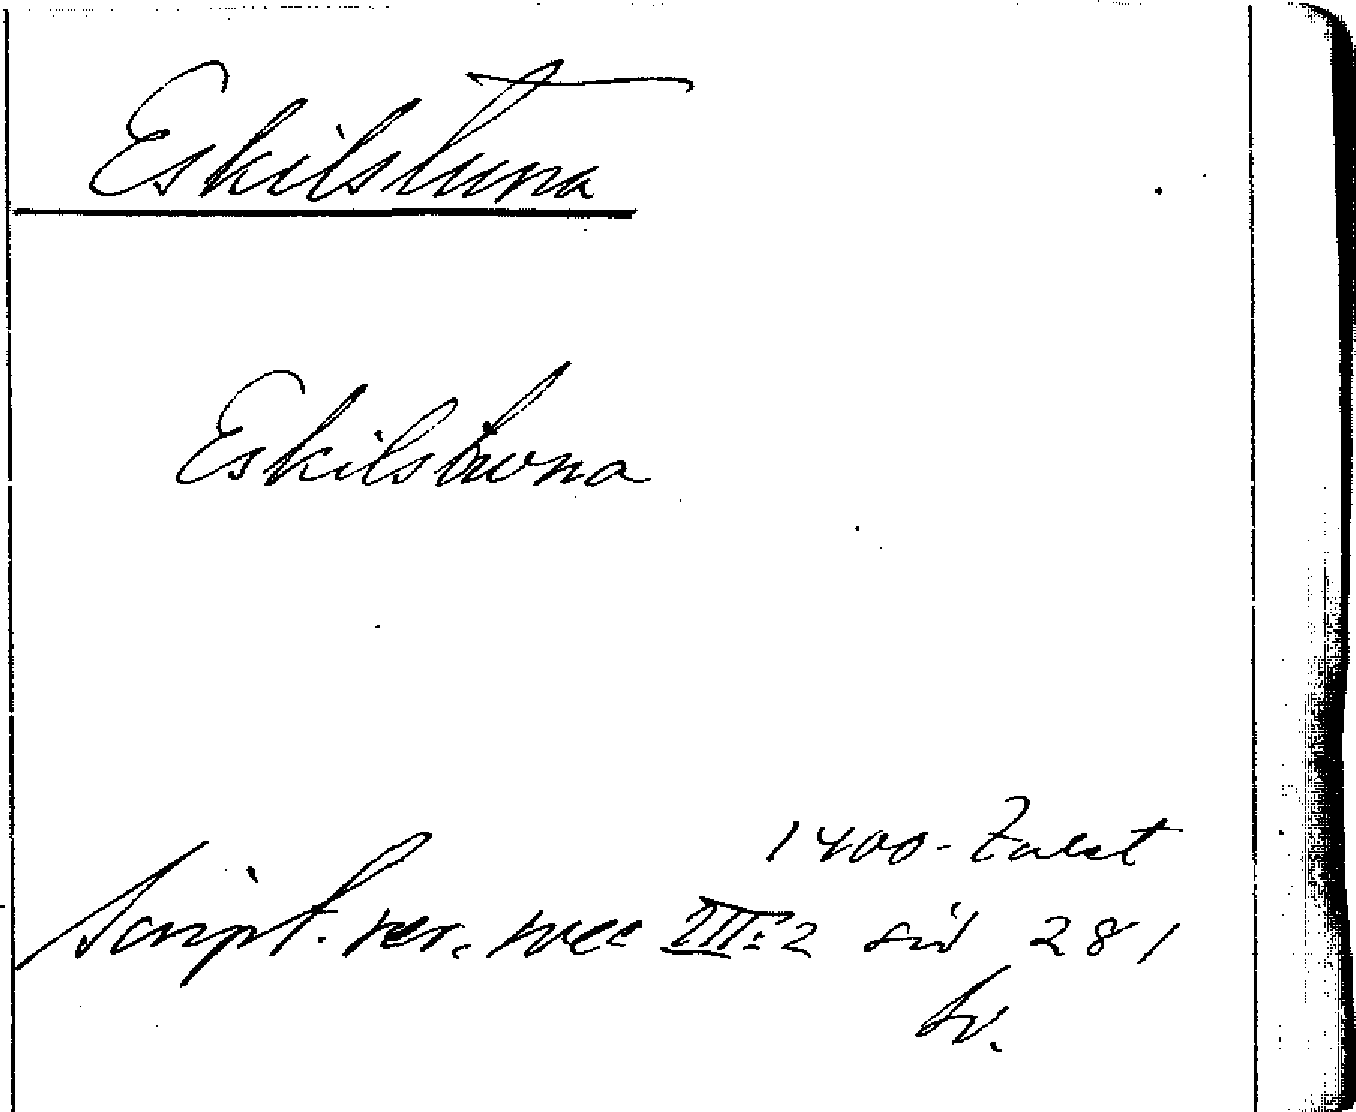 Eskilstuna
Eskilstuna
1400-talet
Script. rer. svec III:2 sid 281
sv.